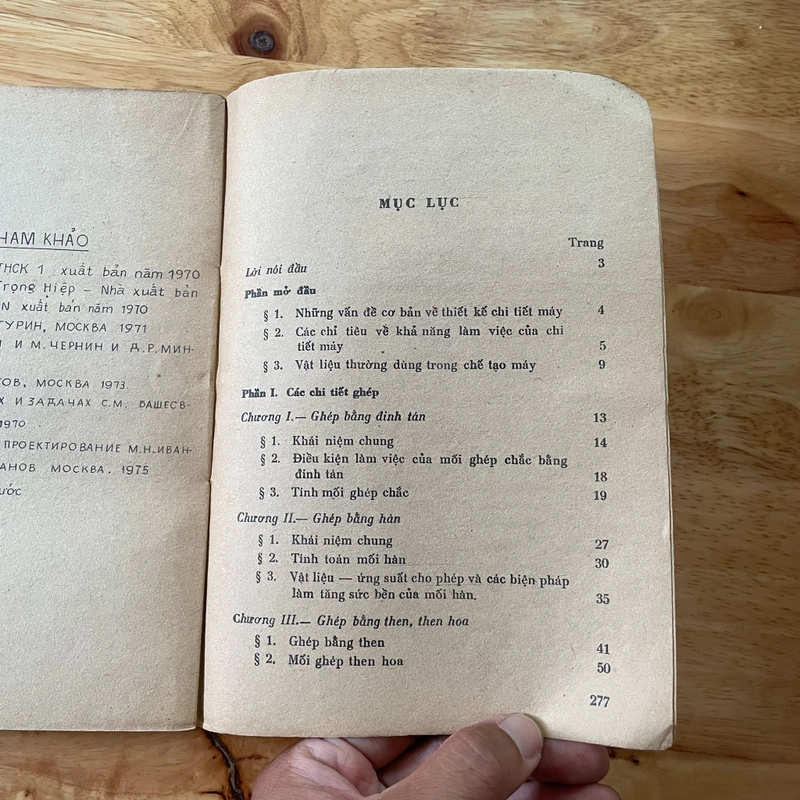 HAM KHẢO
THCK 1 xuất bản năm 1970
Trọng Hiệp – Nhà xuất bản
N xuất bản năm 1970
ГУРИН, МОСКВА 1971
И М. ЧЕРНИН И Д.Р. МИН-
ОВ, МОСКВА 1973.
Х И ЗАДАЧАХ С.М. БАШЕЕВ-
1970
ПРОЕКТИРОВАНИЕ М.Н. ИВАН-
АНОВ МОСКВА. 1975
ước
MỤC LỤC
Trang
Lời nói đầu 3
Phần mở đầu
§ 1. Những vấn đề cơ bản về thiết kế chi tiết máy 4
§ 2. Các chỉ tiêu về khả năng làm việc của chi
tiết máy 5
§ 3. Vật liệu thường dùng trong chế tạo máy 9
Phần I. Các chi tiết ghép
Chương I.— Ghép bằng đinh tán 13
§ 1. Khái niệm chung 14
§ 2. Điều kiện làm việc của mối ghép chắc bằng
đinh tán 18
§ 3. Tính mối ghép chắc 19
Chương II.— Ghép bằng hàn
§ 1. Khái niệm chung 27
§ 2. Tính toán mối hàn 30
§ 3. Vật liệu — ứng suất cho phép và các biện pháp
làm tăng sức bền của mối hàn. 35
Chương III.— Ghép bằng then, then hoa
§ 1. Ghép bằng then 41
§ 2. Mối ghép then hoa 50
277